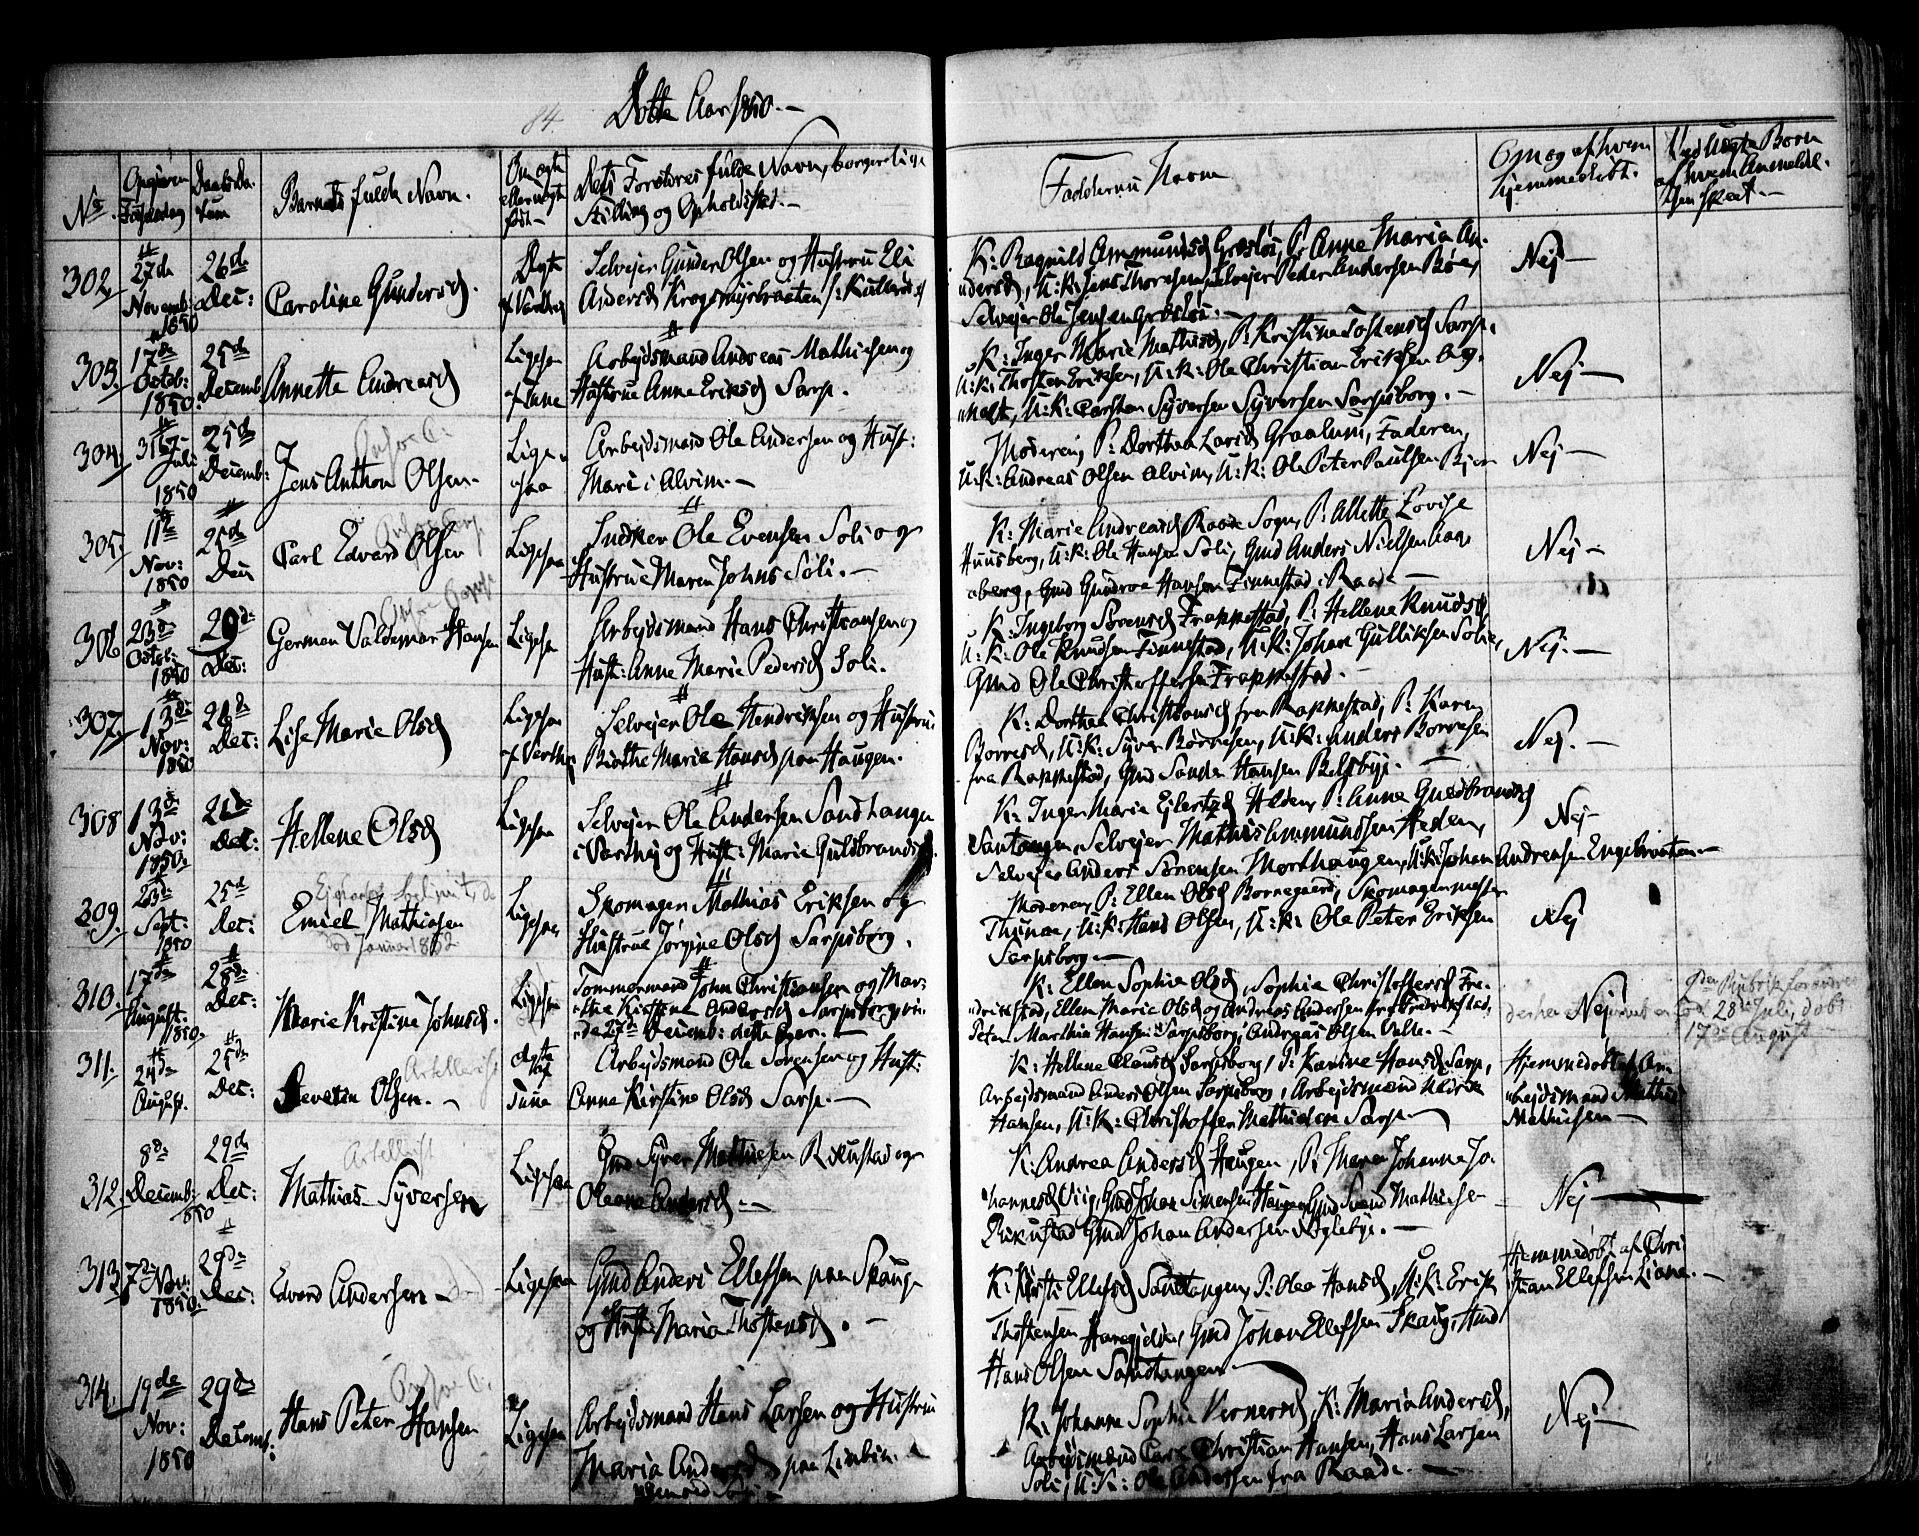 84. Døbte Aar 1850.—
No
Opgiven Fødselsdag
Daabsdatum
Barnets fulde Navn.
Om ægte eller uægte født—
Dets Forældres fulde Navn, borgerlige
Stilling og Opholdsted.—
Faddernes Navn
Om og af hvem
hjemmedøbt.
Ved Uægte Børn
af hvem Anmeldel-
sen skeet—
302. 27de Novemb: 1850
26de Dec:
Caroline Gundersd.
Ægte
Selvejer Gunder Olsen og Hustrue Eli
Andersd Krogsmyrbraaten
K: Ragnild Ammundsd Gresløs, P: Anne Maria An-
dersd, U: K: Jens Thoresen, Selvejer Peder Andersen Bøe,
Selvejer Ole Jensen
Nej—
303. 17de Octob: 1850.
25de Decemb:
Annette Andreasd
Ligesaa
Tune
Arbejdsmand Andreas Mathiesen og
Hustrue Anne Eriksd Sarp.
K: Inger Marie Mathisd, P: Kristine Tostensd Sarp,
U: K: Thosten Eriksen, U: K: Ole Christian Eriksen
U: K: Carsten Syversen Sarpsborg.—
Nej—
304. 31 Juli 1850
25de Decemb:
Jens Anthon Olsen—
Ligesaa
Arbejdsmand Ole Andersen og Hust:
Mari i Alvim.—
Moderen, P: Dorthea Larsd Graalum, Faderen,
U: K: Andreas Olsen Alvim, U: K: Ole Peter Paulsen
Nej—
305. 11te Nov: 1850
25de Dec
Carl Edvard Olsen
Ligesaa
Snedker Ole Evensen Soli og
Hustrue Maren Johns Soli.—
K: Marie Andreasd Raade Sogn, P: Allette Lovise
Huusberg, U: K: Ole Hansen Soli, Gmd Anders Nielsen
Gmd Gundroe Hansen Finnestad i Raade—
Nej—
306. 23de Octob: 1850
29de Dec:
German Valdemar Hansen
Ligesaa
Arbejdsmand Hans Christiansen og
Hust: Anne Marie Pedersd Soli.
K: Ingeborg Sørensd Trappestad, P: Hellene Knudsd
U: K: Ole Knudsen Finnestad, U: K: Johan Gulliksen Solie,
Gmd Ole Christoffersen Trappestad.
Nej.—
307. 13de Nov: 1850
26de Dec:
Lise Marie Olsd
Ligesaa
Selvejer Ole Hendriksen og Hustrue
Birthe Marie Hansd paa Haugen.
K: Dorthea Christiansd fra Rappestad, P: Karen
Børresd, U: K: Syver Børresen, U: K: Anders Børresen
fra Rappestad, Gmd Sander Hansen
Nej.—
308. 13de Nov: 1850.
26de Dec:
Hellene Olsd
Ligesaa
Selvejer Ole Andersen Sandtangen
i Varthej og Hust: Marie Guldbrandsd.
K: Inger Maria Ejlertsd Heden, P: Anne Guldbrandsd
Santangen, Selvejer Mathis Ammundsen Heden,
Selvejer Anders Sørensen Morthaugen, U: K: Johan Andreasen Engebraaten—
Nej—
309. 23de Sept: 1850
25de Dec:
Emiel Mathiasen
død Januar 1852
Ligesaa
Skomager Mathias Eriksen og
Hustrue Jørgine Olsd Sarpsborg.
Moderen, P: Ellen Olsd Borregaard, Skomagermester
Thunae, U: K: Hans Olsen, U: K: Ole Peter Eriksen
Sarpsborg—
Nej
310. 17de August. 1850.
28de Dec:
Marie Kristine Johnsd.
Ligesaa
Tømmermand John Christiansen og Mar-
the Kirstine Andersd Sarpsborg
27de Decemb: dette Aar.—
K: Ellen Sophia Olsd, Sophia Christoffersd Fre-
drikstad, Ellen Marie Olsd og Andreas Andersen fra Fredrikstad,
Peter Marthin Hansen Sarpsborg, Andreas Olsen Valle.—
Nej
28de Juli, døbt
17de August
311. 24de August.
25de Dec:
Severin Olsen.—
Ægte
Tune
Arbejdsmand Ole Sørensen og Hust:
Anne Kirstine Olsd Sarp.—
K: Hellene Clausd Sarpsborg, P: Karine Hansd Sarp,
Arbejdsmand Anders Olsen Sarpsborg, Arbejdsmand
Hansen, U: K: Christoffer Mathiesen Sarp—
Hjemmedøbt af Ar-
bejdsmand Mathias
Mathisen—
312. 8de Decemb: 1850
29de Dec:
Artellerist
Mathias Syversen
Ligesaa
Gmd Syver Mathiesen Rikustad og
Oleane Andersd.—
K: Andrea Andersd Haugen, P: Maren Johanne Jo-
hannesd Gmd Johan Simensen Haugen, Gmd Svend Mathiese
Rikustad Gmd Johan Andersen Nøglebye.—
Nej—
313. 7de Nov: 1850.
29de Dec:
Edvard Andersen—
Ligesaa
Gmd Anders Ellefsen paa Skaug
og Hust: Maria Thostensd.—
K: Kirsti Ellefsd Sandtangen, P: Olea Hansd, U: K: Erik
Thostensen Haregjelen, Gmd Johan Ellefsen Skaug, Hmd
Hans Olsen Sandtangen
Hjemmedøbt af Chri-
stian Ellefsen Liane.—
314. 19de Nov: 1850
29de Decemb:
Hans Peter Hansen
Ligesaa
Arbejdsmand Hans Larsen og Hustrue
Maria Andersd paa
K: Johanne Sophie Vernersd, K: Maria Andersd,
Arbejdsmand Carl Christian Hansen, Hans Larsen
Soli, U: K: Ole Andersen fra Raade.—
Nej—